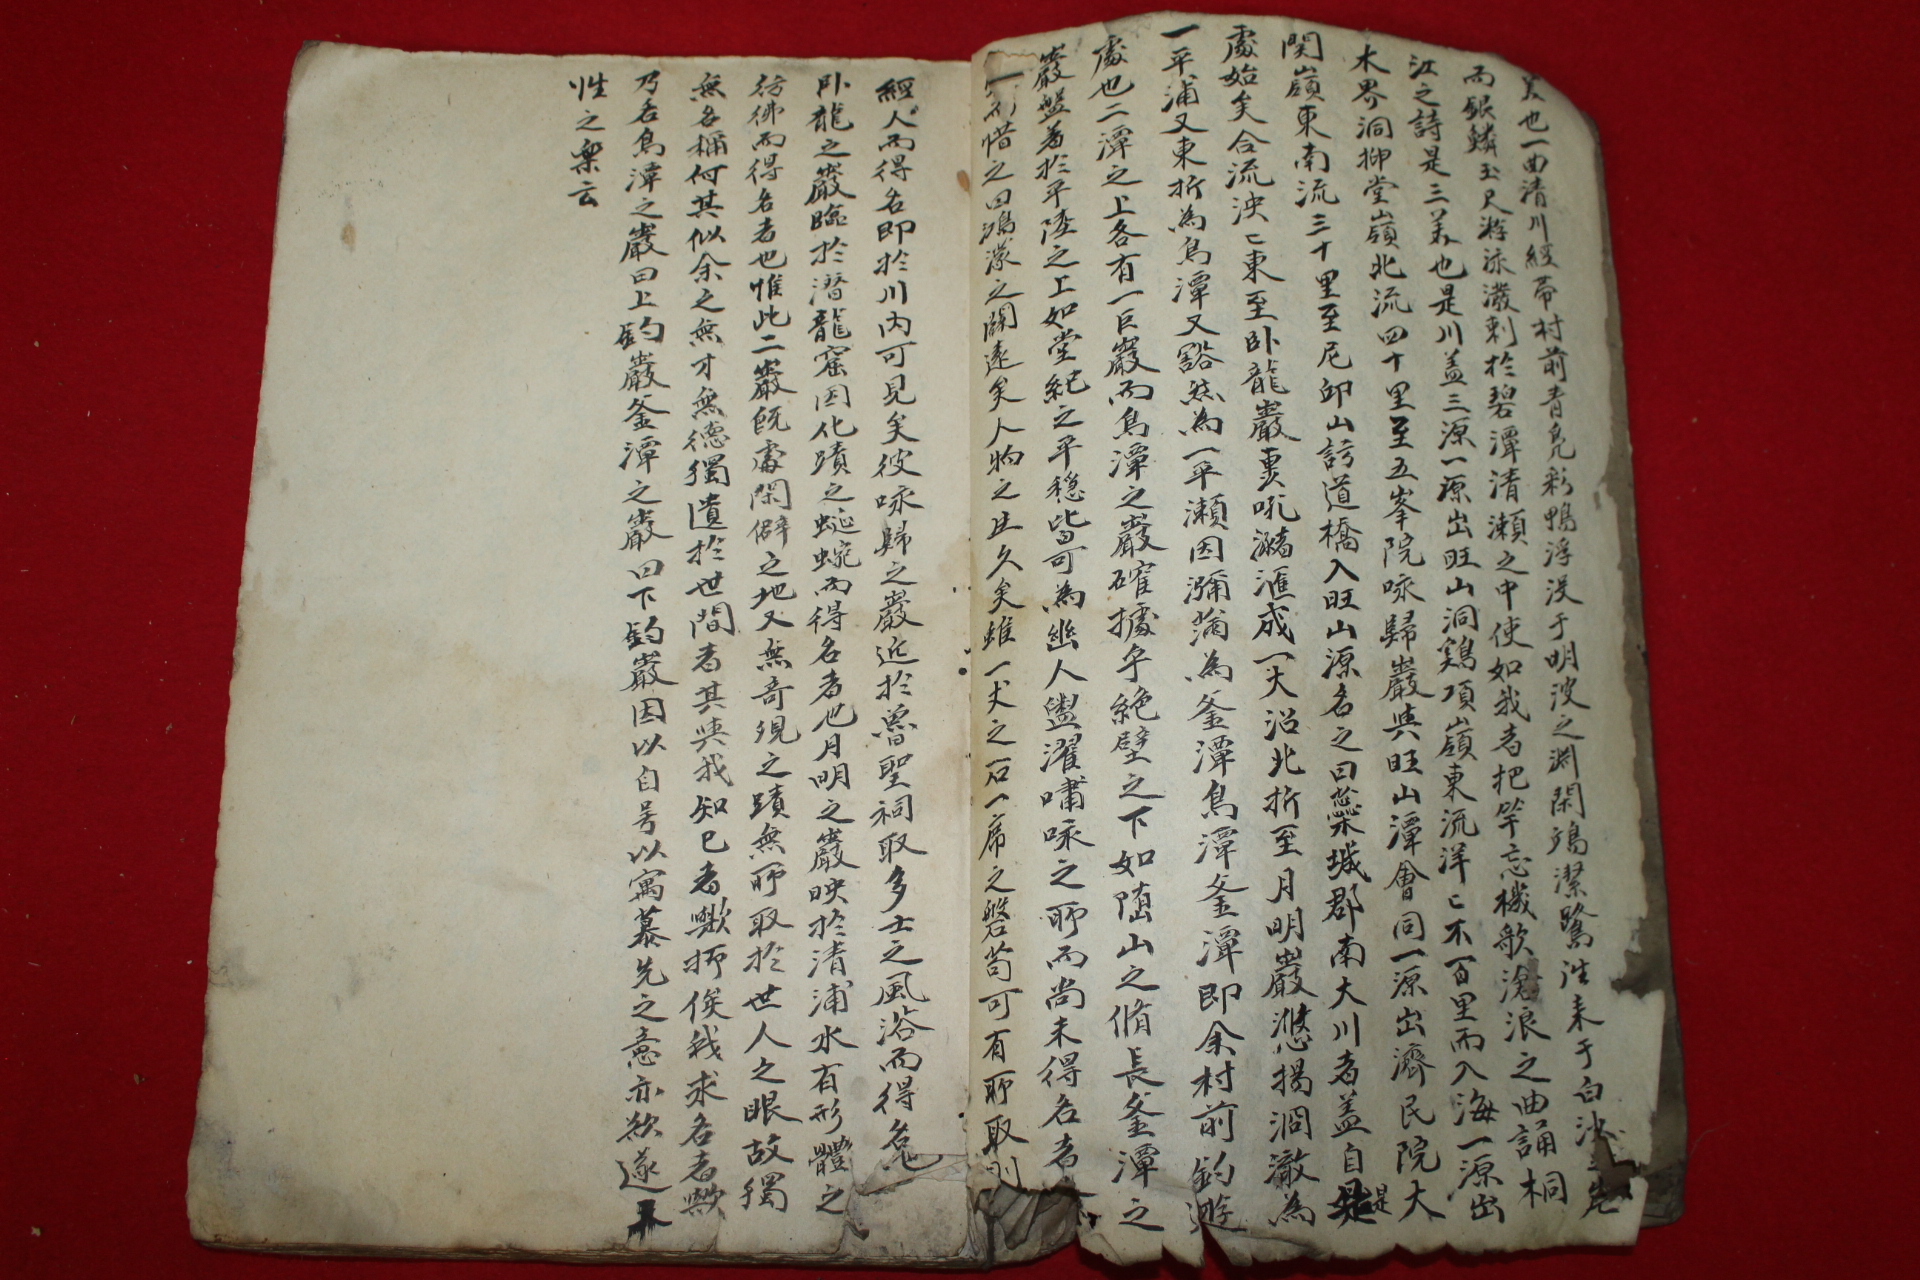 美也一曲清川經帶村前青鳧彩鴨浮沒于明波之淵閑鷗潔鷺往来于白沙
而銀鱗玉尺游泳潑剌於碧潭清瀨之中使如我者把竿忘機歌滄浪之曲誦桐
江之詩是三美也是川盖三源一源出旺山洞鷄項嶺東流洋〻不百里而入海一源出
木界洞抑堂嶺北流四十里至五峯院咏歸巖與旺山潭會同一源出濟民院大
関嶺東南流三十里至尼卯山訪道橋入旺山源名之曰蘂城郡南大川者盖自是
處始矣合流泱〻東至卧龍巖賁吼瀦滙成一大沼北折至月明巖漨揭泂澈為
一平浦又東折為鳥潭又豁然為一平瀬因瀰滿為釜潭鳥潭釜潭即余村前釣遊
處也二潭之上各有一巨巖而鳥潭之巖確據乎絶壁之下如墮山之脩長釜潭之
巖盤着於平陸之上如堂紀之平穏皆可為幽人盥濯嘯咏之所而尚未得名者
惜之曰鴻濛之闢遠矣人物之生久矣雖一犬之石一席之磐苟可有所取則
經人而得名即於川内可見矣彼咏歸之巖近於魯聖祠取多士之風浴而得名
卧龍之巖臨於潛龍窟因化蹟之蜿蜿而得名者也月明之巖映於清浦水有形體之
彷彿而得名者也惟此二巖旣處閑僻之地又無奇現之蹟無所取於世人之眼故獨
無名稱何其似余之無才無德獨遺於世間者其與我知已者歟抑俟我求名者歟
乃名鳥潭之巖曰上釣巖釜潭之巖曰下釣巖因以自号以寓慕先之意亦欲遂
性之樂云